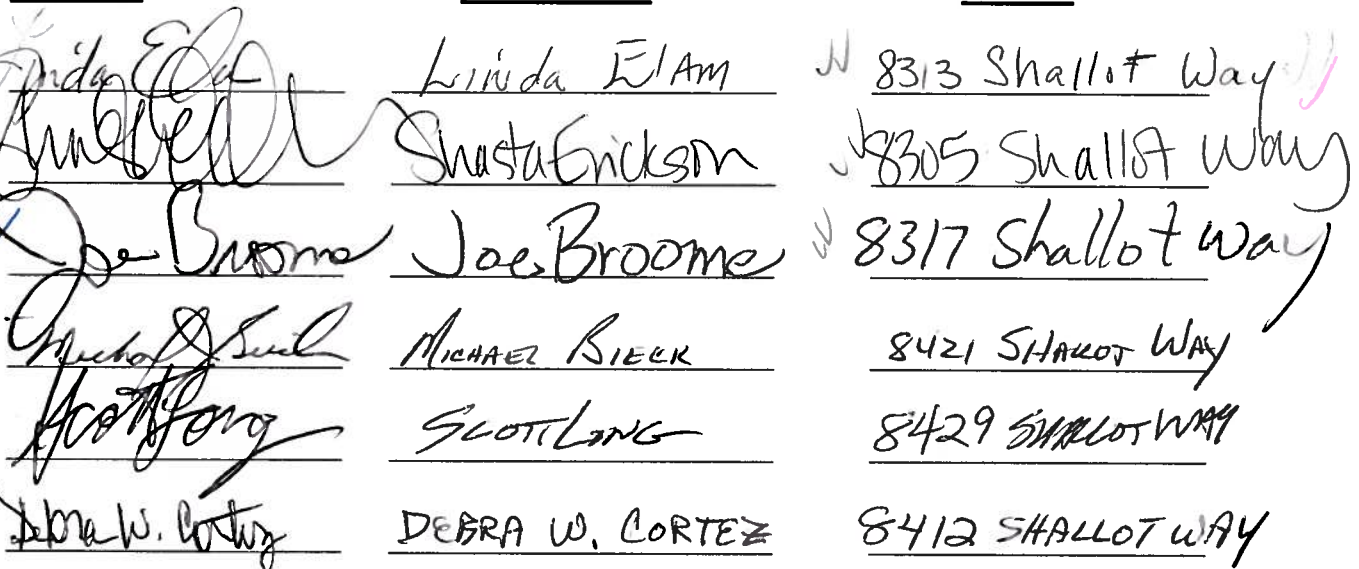 Linda Elam Linda Elam 8313 Shallot Way
Shasta Erickson 8305 Shallot Way
Joe Broome Joe Broome 8317 Shallot Way
Michael J. Bieck Michael Bieck 8421 Shallot Way
Scott Long Scott Long 8429 Shallot Way
Debra W. Cortez DEBRA W. CORTEZ 8412 SHALLOT WAY